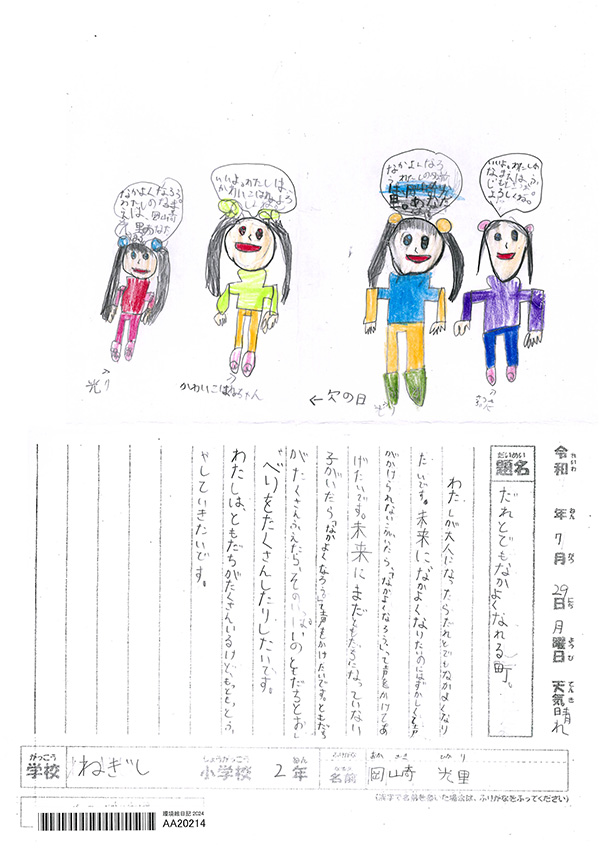 なかよくなろう。
わたしのなま
えは、岡山崎
光里あなた
は?
いいよ。わたしは、
かわいこはねよろ
しく
なかよくなろ
う。わたしの名前
里。あなた
いいよ。わたしの
なまえは、
よろしくね。
光り
かわいこはねちゃん
←次の日
光り
令和 年 7月 29日 月曜日 天気 晴れ
れいわ ねん がつ にち ようび てんき
だいめい
題名
だれとでもなかよくなれる町。
わたしが大人になったらだれとでもなかよくなり
たいです。未来に、なかよくなりたいのにはずかしくて声
がかけられない子がいたら、「なかよくなろう。」って声をかけてあ
げたいです。未来にまだともだちになっていない
子がいたら「なかよくなろう。」って声をかけたいです。ともだち
がたくさんふえたら、そのいっぱいのともだちとおし
ゃべりをたくさんしたりしたいです。
わたしは、ともだちがたくさんいるけど、もっともっとふ
やしていきたいです。
がっこう しょうがっこう ねん ふりがな おか さき ひかり
学校 ねぎし 小学校 2年 なまえ 名前 岡山崎 光里
(漢字で名前を書いた場合は、ふりがなをふってください)
環境絵日記 2024
AA20214